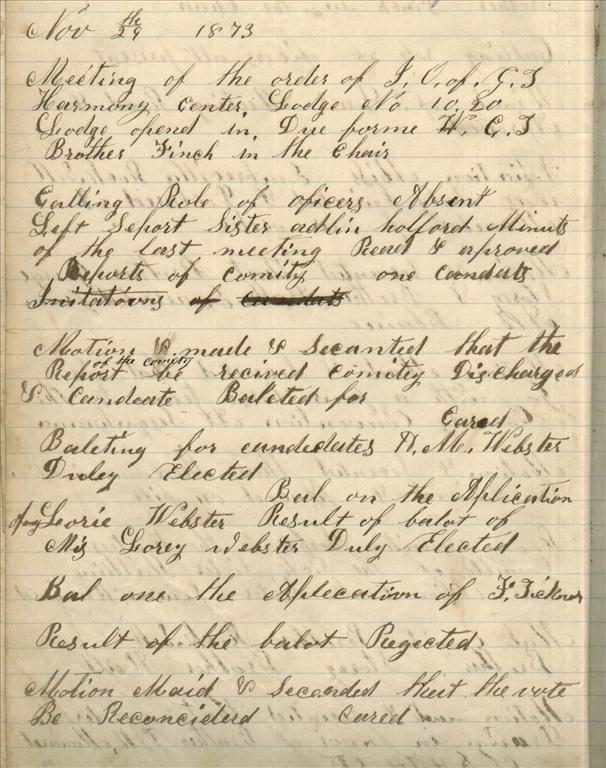 Nov 29th 1873
Meeting of the order of I. O. of. G. T
Harmony center Lodge No 10.20
Lodge opend in Due forme W. C. T
Brother Finch in the Chair
Calling Role of oficers Absent
Left Seport Sister adlin holford Minuts
of the last meeting Read & aproved
Reports of comity one candats
Initatiovns of candats
Motion & made & secanted that the
of the comity
Report be recived comitey Discharged
& Candeate Baleted for
Cared
Baleting for candedates A. M. Webster
Duley Elected
Bal on the Aplication
of any Lorie Webster Result of balot of
Mis Lorey Webster Duly Elected
Bal one the Aplecation of F. Ticknor
Result of the balot Regected
Motion Maid & Secanded that the vote
Be Reconciderd cared